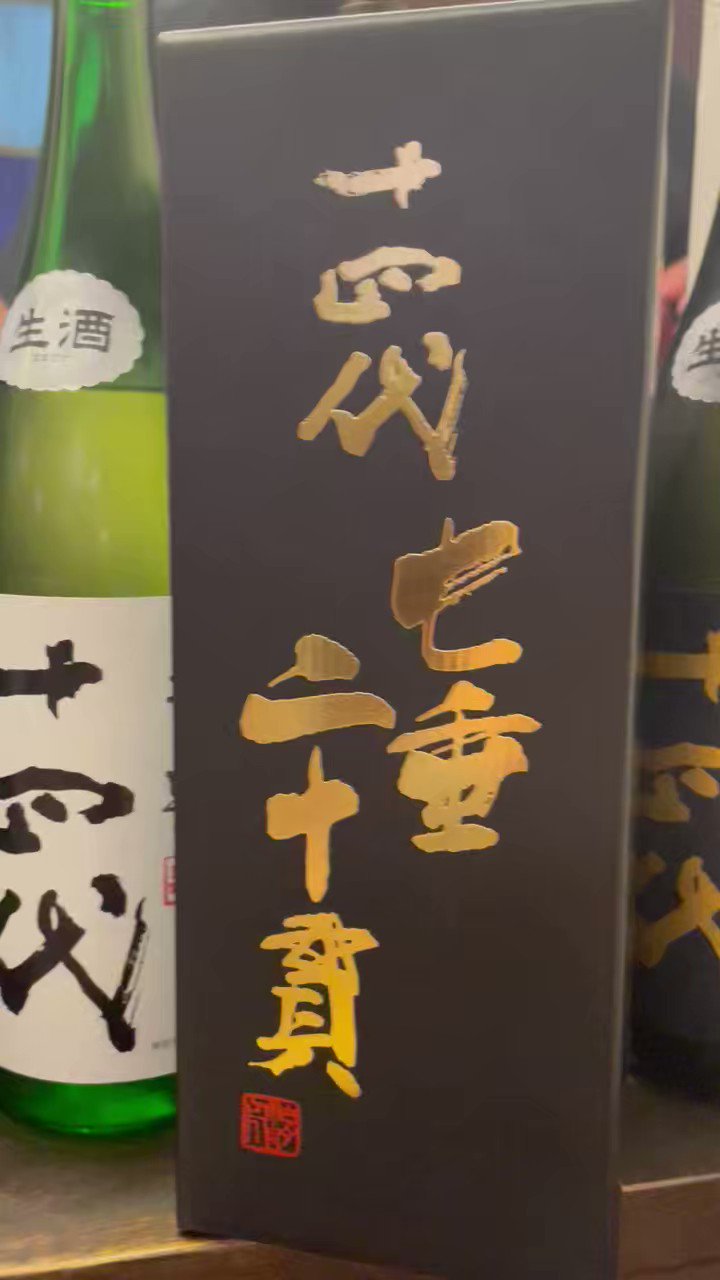 生酒
十四代
十四代
七垂
二十貫
生
十四代